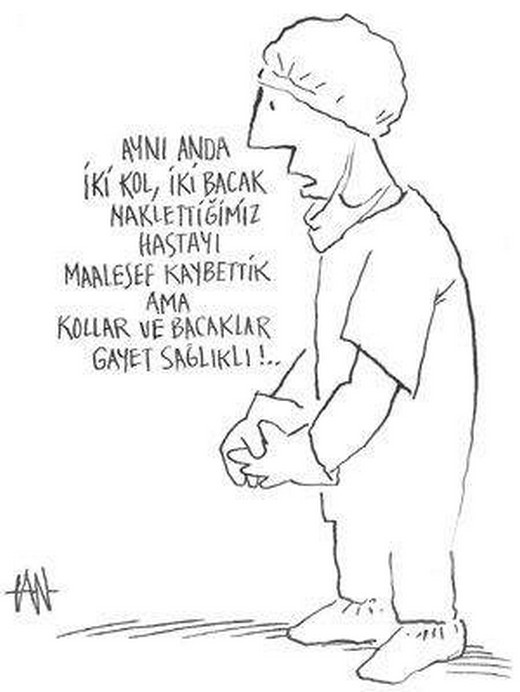 AYNI ANDA
İKİ KOL, İKİ BACAK
NAKLETTİĞİMİZ
HASTAYI
MAALESEF KAYBETTİK
AMA
KOLLAR VE BACAKLAR
GAYET SAĞLIKLI!..